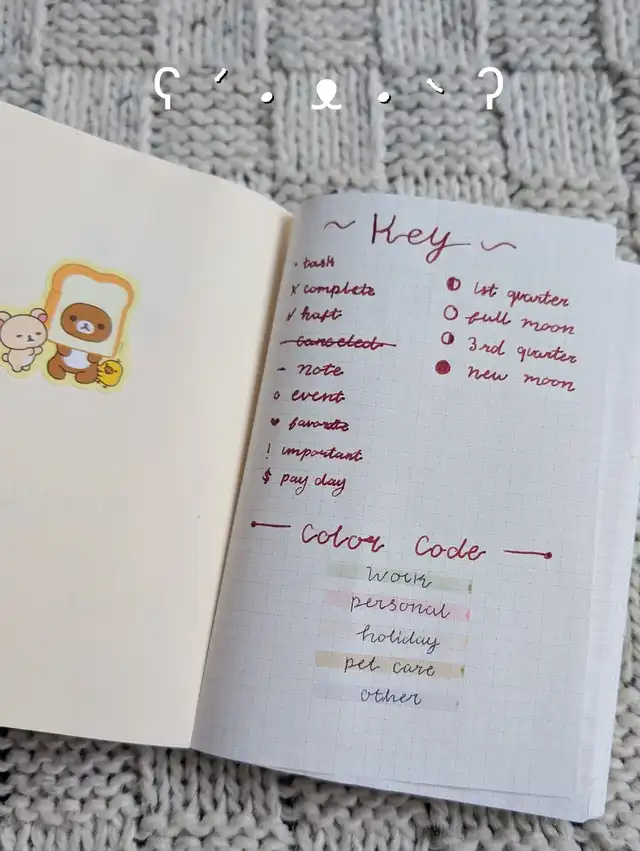 ʕ ˊ • ᴥ • ˋ ʔ
~ Key ~
· task
x complete
√ haft
canceled
- note
o event
♥ favorite
! important
$ pay day
1st quarter
full moon
3rd quarter
new moon
Color Code
work
personal
holiday
pet care
other